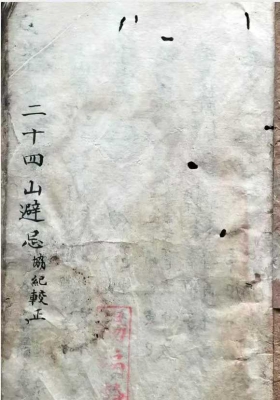 二十四山避忌 協紀較正